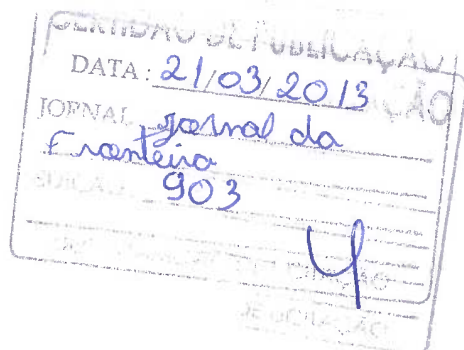 CERTIDÃO DE PUBLICAÇÃO
DATA: 21/03/2013
JORNAL Jornal da
Fronteira
903